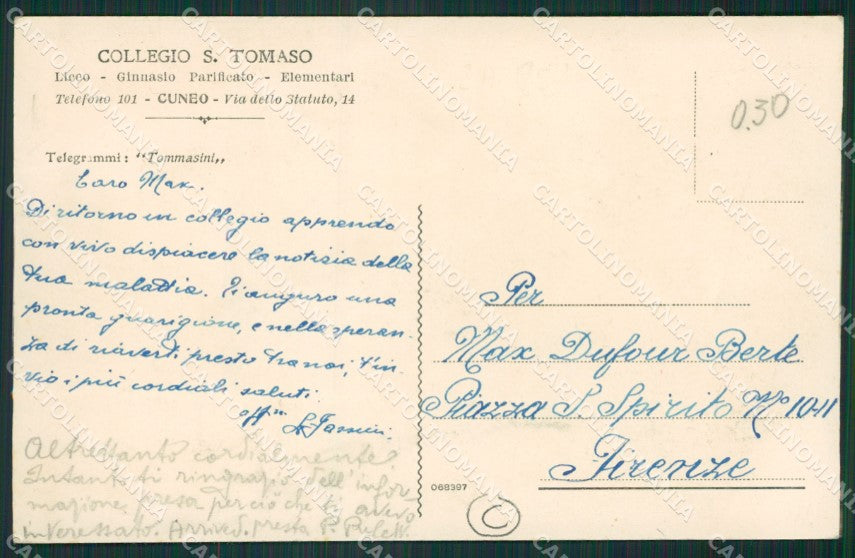 COLLEGIO S. TOMASO
Liceo - Ginnasio Parificato - Elementari
Telefono 101 - CUNEO - Via dello Statuto, 14
0.30
Telegrammi: "Tommasini„
Caro Max.
Di ritorno in collegio apprendo
con vivo dispiacere la notizia della
tua malattia. Ti auguro una
pronta guarigione, e nella speran-
za di riaverti presto tra noi, t'in
vio i più cordiali saluti.
aff.mo
Altrettanto cordialmente
Intanto ti ringrazio dell'infor
mazione presa perciò che ti avevo
interessato. Arrived. presto P.
Per
Max Dufour Berte
Piazza S. Spirito No 10-11
Firenze
068397
C
CARTOLINOMANIA